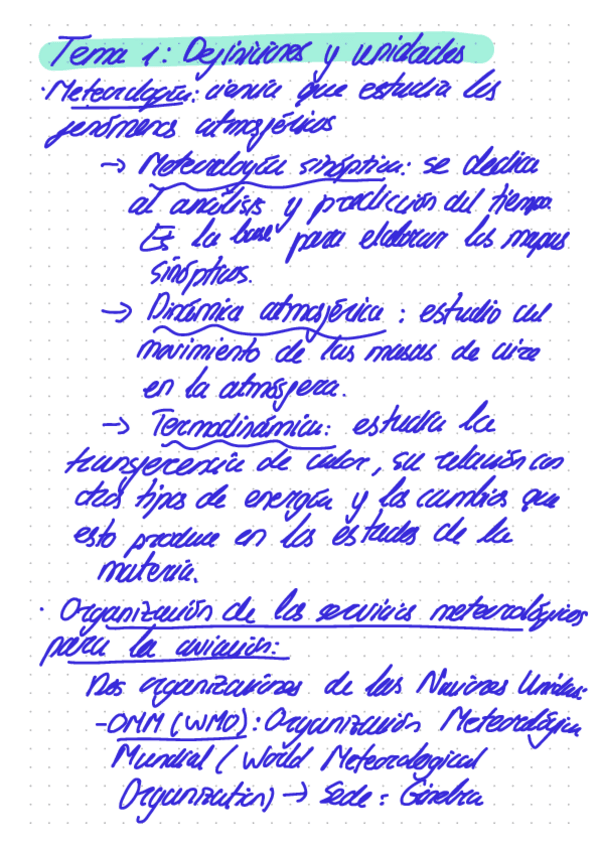 Tema 1: Definiciones y unidades
· Meteorología: ciencia que estudia los
fenómenos atmosféricos
→ Meteorología sinóptica: se dedica
al análisis y predicción del tiempo.
Es la base para elaborar los mapas
sinópticos.
→ Dinámica atmosférica : estudio del
movimiento de las masas de aire
en la atmósfera.
→ Termodinámica: estudia la
transferencia de calor, su relación con
otros tipos de energía y los cambios que
esto produce en los estados de la
materia.
· Organización de los servicios meteorológicos
para la aviación:
Dos organizaciones de las Naciones Unidas:
- OMM (WMO) : Organización Meteorológica
Mundial (World Meteorological
Organization) → Sede : Ginebra